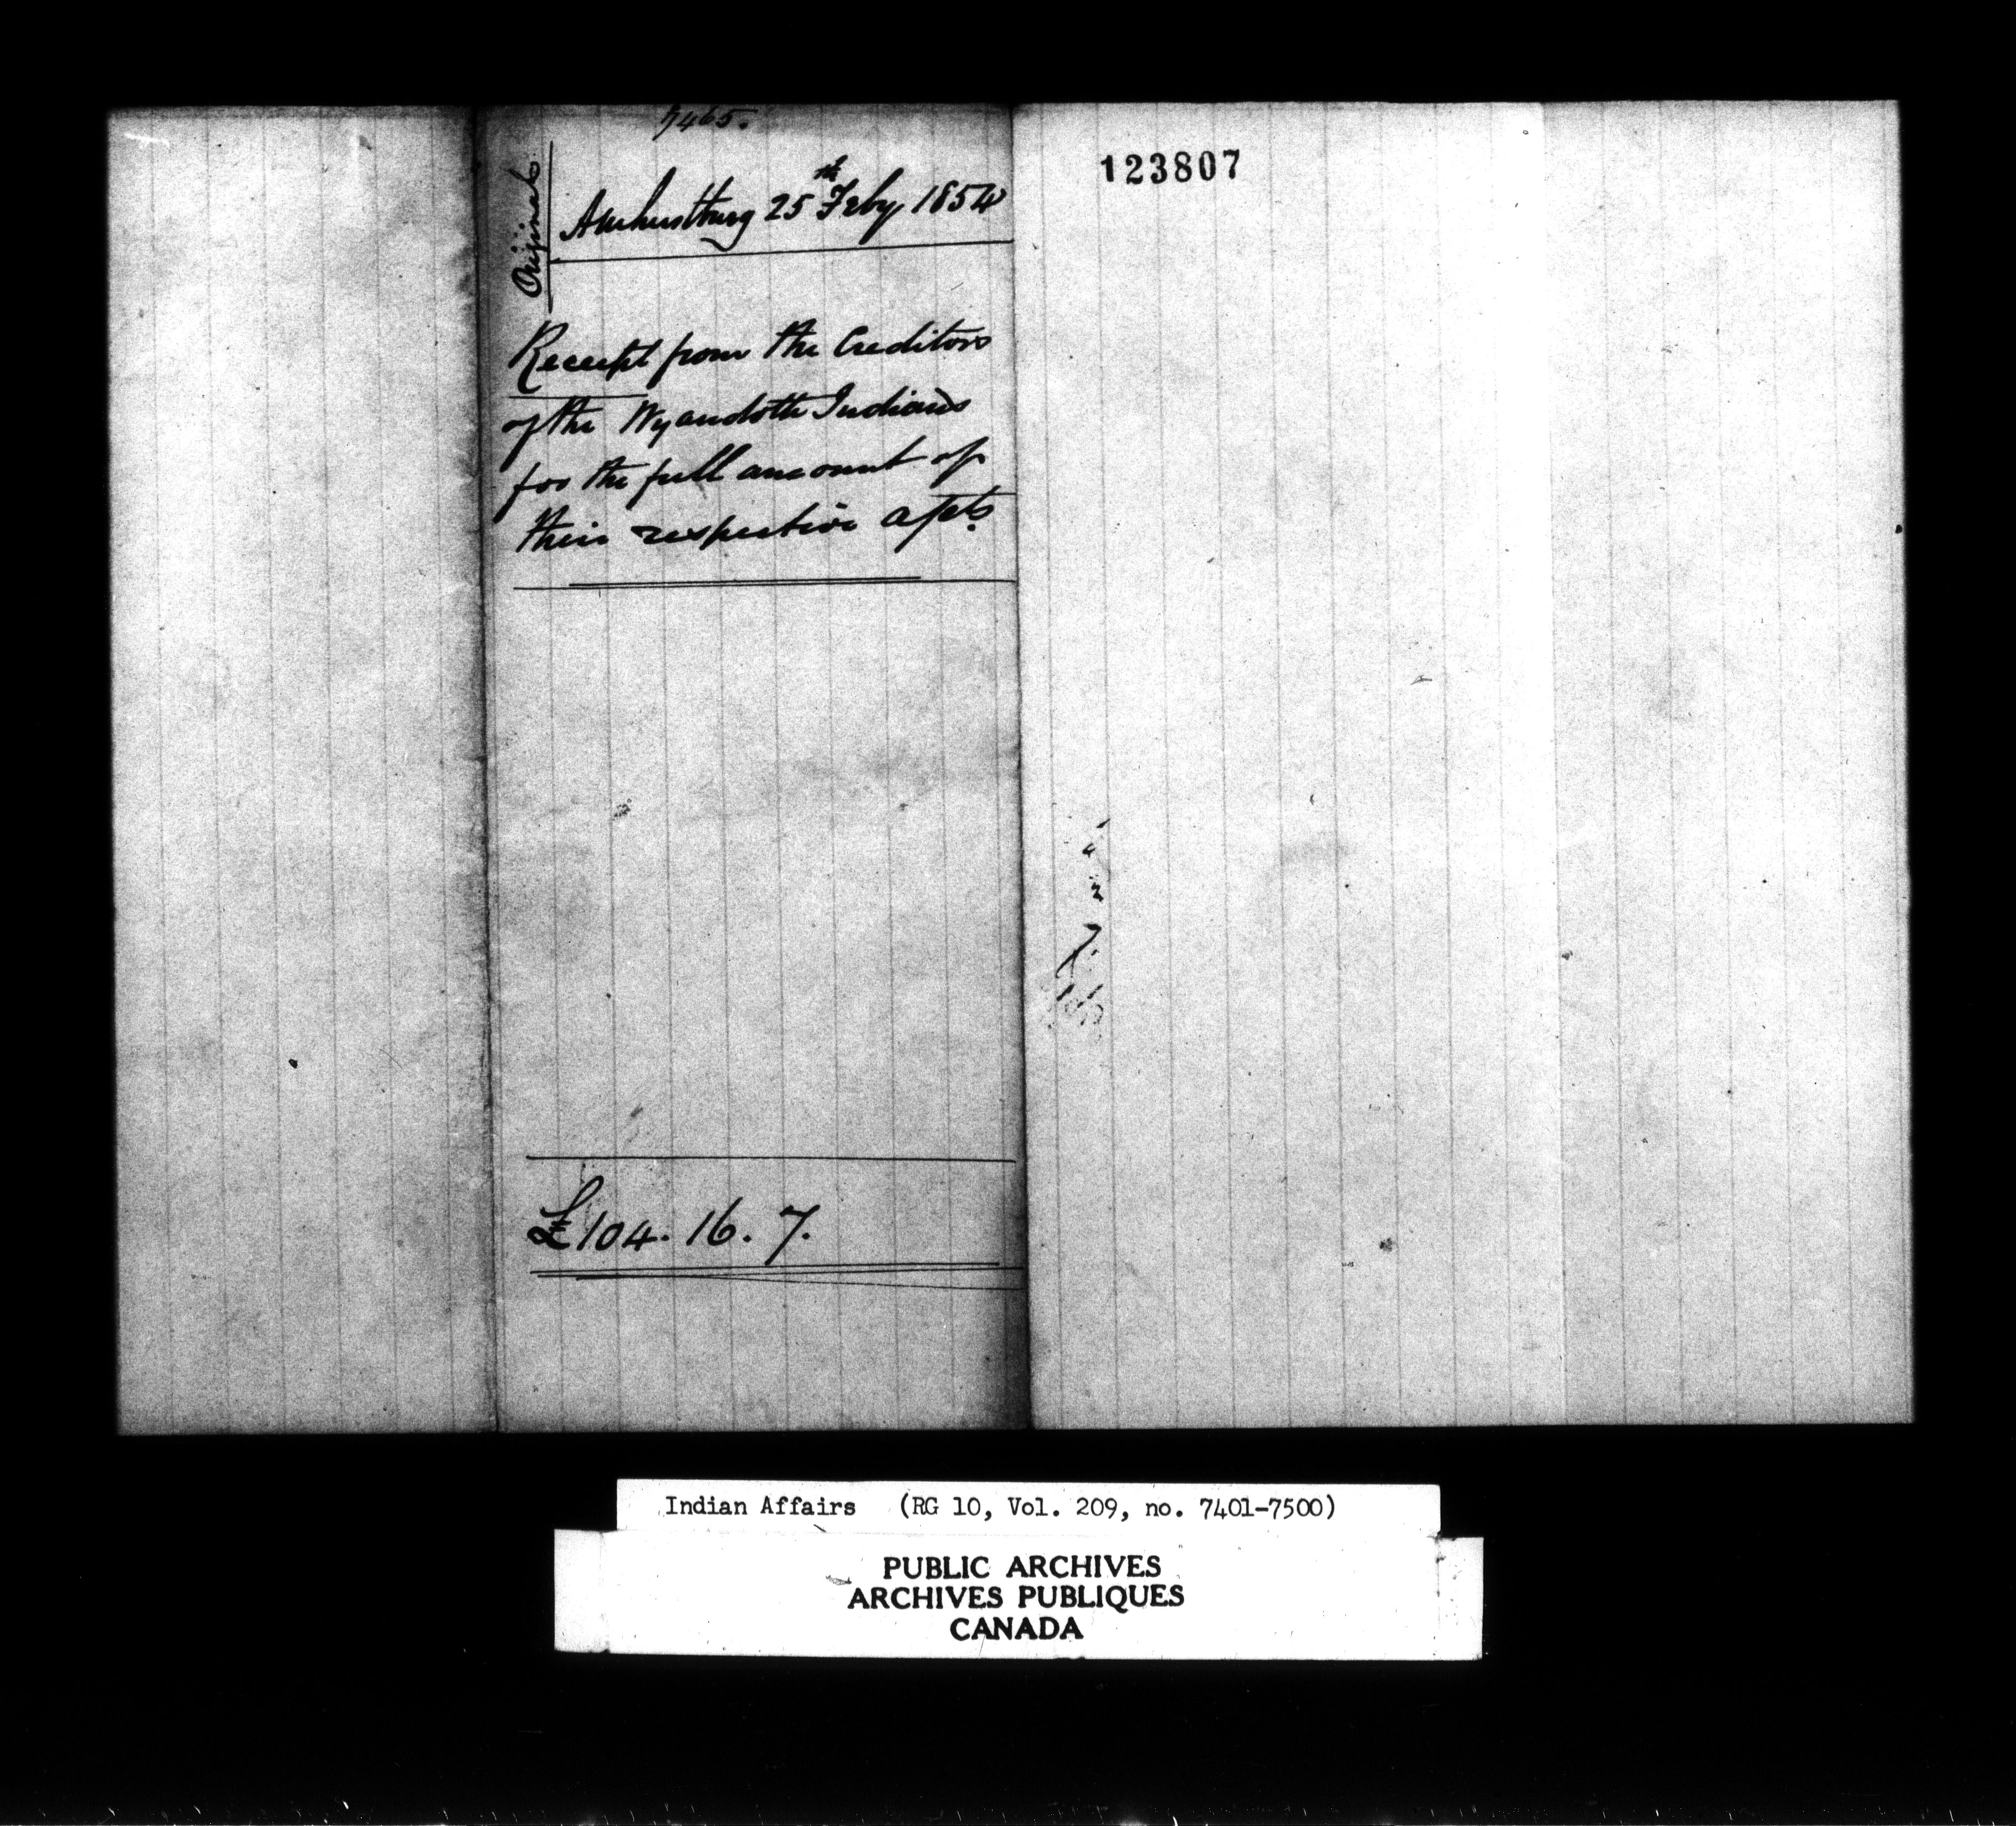 7465.
Original
Amherstburg 25th Feby 1854
123807
Receipt from the Creditors
of the Wyandott Indians
for the full amount of
their respective a/cts
£104. 16. 7.
Indian Affairs (RG 10, Vol. 209, no. 7401-7500)
PUBLIC ARCHIVES
ARCHIVES PUBLIQUES
CANADA